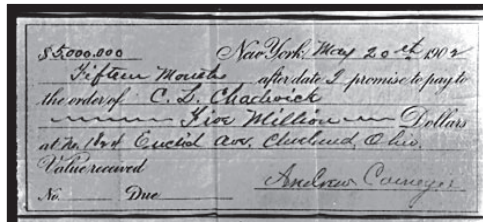 $5.000.000 New York, May 20th 1902
Fifteen Months after date I promise to pay to
the order of C. L. Chadwick
Five Million Dollars
at Euclid Ave, Cleveland, Ohio.
Value received
No. Due Andrew Carnegie